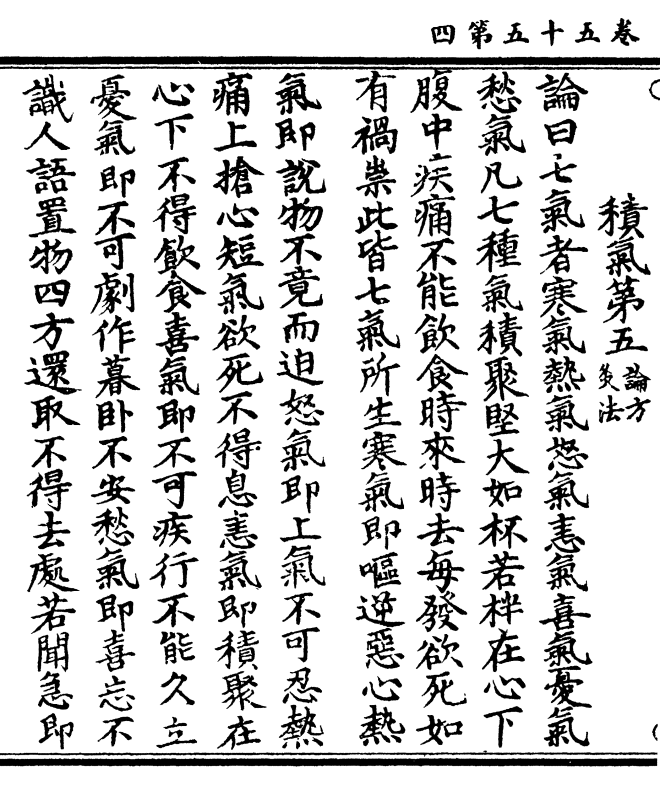 卷五十五第四
積氣第五論方灸法
論曰七氣者寒氣熱氣怒氣恚氣喜氣憂氣
愁氣凡七種氣積聚堅大如杯若柈在心下
腹中疾痛不能飲食時來時去每發欲死如
有禍祟此皆七氣所生寒氣即嘔逆惡心熱
氣即說物不竟而迫怒氣即上氣不可忍熱
痛上搶心短氣欲死不得息恚氣即積聚在
心下不得飲食喜氣即不可疾行不能久立
憂氣即不可劇作暮卧不安愁氣即喜忘不
識人語置物四方還取不得去處若聞急即